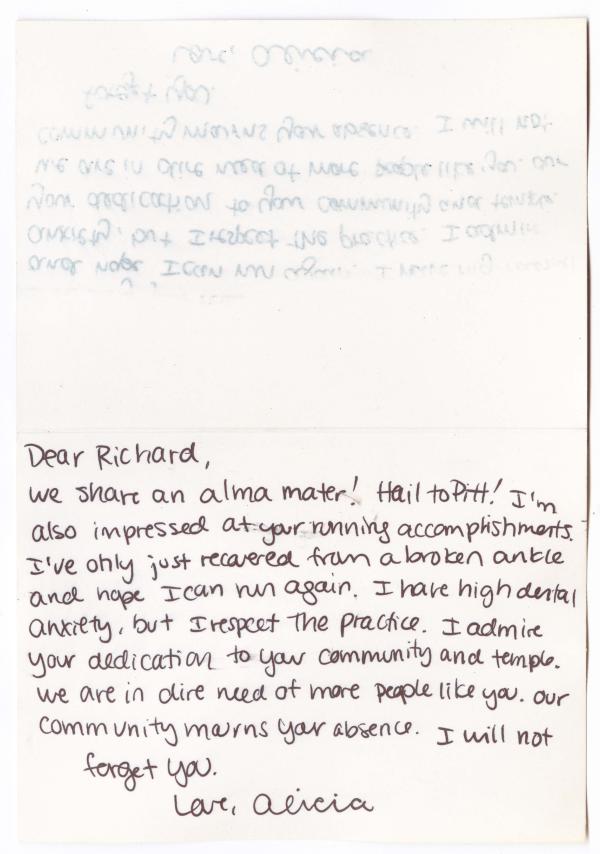 Dear Richard,
we share an alma mater! Hail to Pitt! I'm
also impressed at your running accomplishments.
I've only just recovered from a broken ankle
and hope I can run again. I have high dental
anxiety, but I respect the practice. I admire
your dedication to your community and temple.
we are in dire need of more people like you. our
community mourns your absence. I will not
forget you.
Love, Alicia